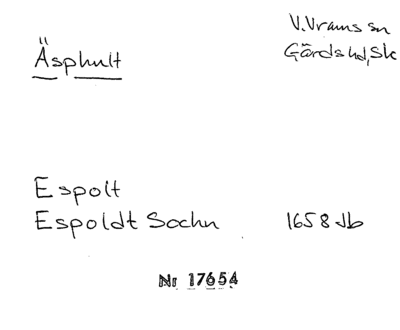 Äsphult
V. Vrams sn
Gärds hd, Sk
Espolt
Espoldt Sochn 1658 Jb
Nr 17654